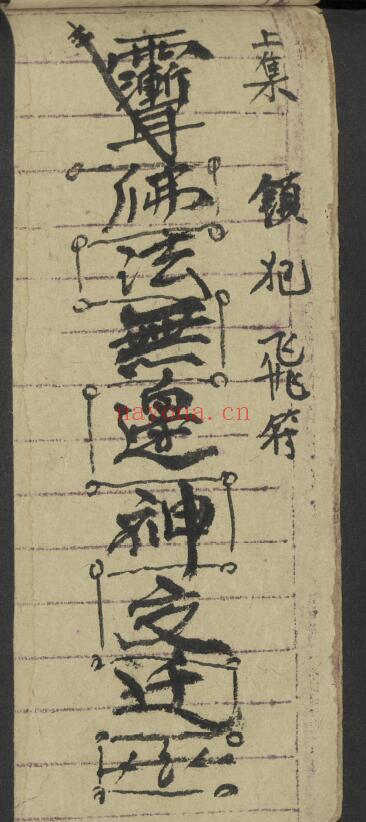 上集
鎮犯飛符
佛法無邊神
nayona.cn